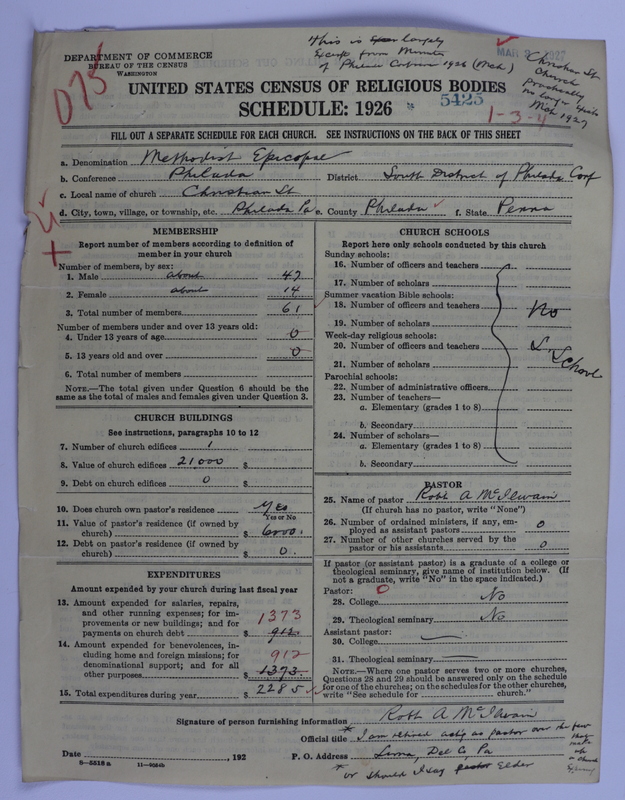 This is largely
Excerpt from Minutes
of Philada Conference 1926 (Mch)
MAR 1927
Christian St.
Church
practically
no longer exists
Mch 1927
DEPARTMENT OF COMMERCE
BUREAU OF THE CENSUS
WASHINGTON
075
UNITED STATES CENSUS OF RELIGIOUS BODIES
SCHEDULE: 1926
5425
1-3-4
FILL OUT A SEPARATE SCHEDULE FOR EACH CHURCH. SEE INSTRUCTIONS ON THE BACK OF THIS SHEET
a. Denomination Methodist Episcopal
b. Conference Philada District South District of Philada Conf
c. Local name of church Christian St
d. City, town, village, or township, etc. Philada Pa e. County Philada f. State Penna
MEMBERSHIP
Report number of members according to definition of
member in your church
Number of members, by sex:
1. Male about 47
2. Female about 14
3. Total number of members 61
Number of members under and over 13 years old:
4. Under 13 years of age 0
5. 13 years old and over 0
6. Total number of members
NOTE.—The total given under Question 6 should be the
same as the total of males and females given under Question 3.
CHURCH BUILDINGS
See instructions, paragraphs 10 to 12
7. Number of church edifices 1
8. Value of church edifices 21000 $
9. Debt on church edifices 0 $
10. Does church own pastor's residence Yes
Yes or No
11. Value of pastor's residence (if owned by
church) $ 6000.
12. Debt on pastor's residence (if owned by
church) $ 0.
EXPENDITURES
Amount expended by your church during last fiscal year
13. Amount expended for salaries, repairs,
and other running expenses; for im-
provements or new buildings; and for
payments on church debt $ 912. 1373
14. Amount expended for benevolences, in-
cluding home and foreign missions; for
denominational support; and for all
other purposes $ 1373. 912
15. Total expenditures during year $ 2285
CHURCH SCHOOLS
Report here only schools conducted by this church
Sunday schools:
16. Number of officers and teachers
17. Number of scholars
Summer vacation Bible schools:
18. Number of officers and teachers No
19. Number of scholars
Week-day religious schools:
20. Number of officers and teachers S. School
21. Number of scholars
Parochial schools:
22. Number of administrative officers
23. Number of teachers—
a. Elementary (grades 1 to 8)
b. Secondary
24. Number of scholars—
a. Elementary (grades 1 to 8)
b. Secondary
PASTOR
25. Name of pastor Robt A McIlwain
(If church has no pastor, write "None")
26. Number of ordained ministers, if any, em-
ployed as assistant pastors 0
27. Number of other churches served by the
pastor or his assistants 0
If pastor (or assistant pastor) is a graduate of a college or
theological seminary, give name of institution below. (If
not a graduate, write "No" in the space indicated.)
Pastor: 0
28. College No
29. Theological seminary No
Assistant pastor:
30. College
31. Theological seminary
NOTE.—Where one pastor serves two or more churches,
Questions 28 and 29 should be answered only on the schedule
for one of the churches; on the schedules for the other churches,
write "See schedule for church."
Signature of person furnishing information Robt A McIlwain
Official title * I am retired actg as pastor over the few
that
make
up
a church
Date , 192 P. O. Address Lima, Del Co, Pa
8—5516 a
* or should I say Elder